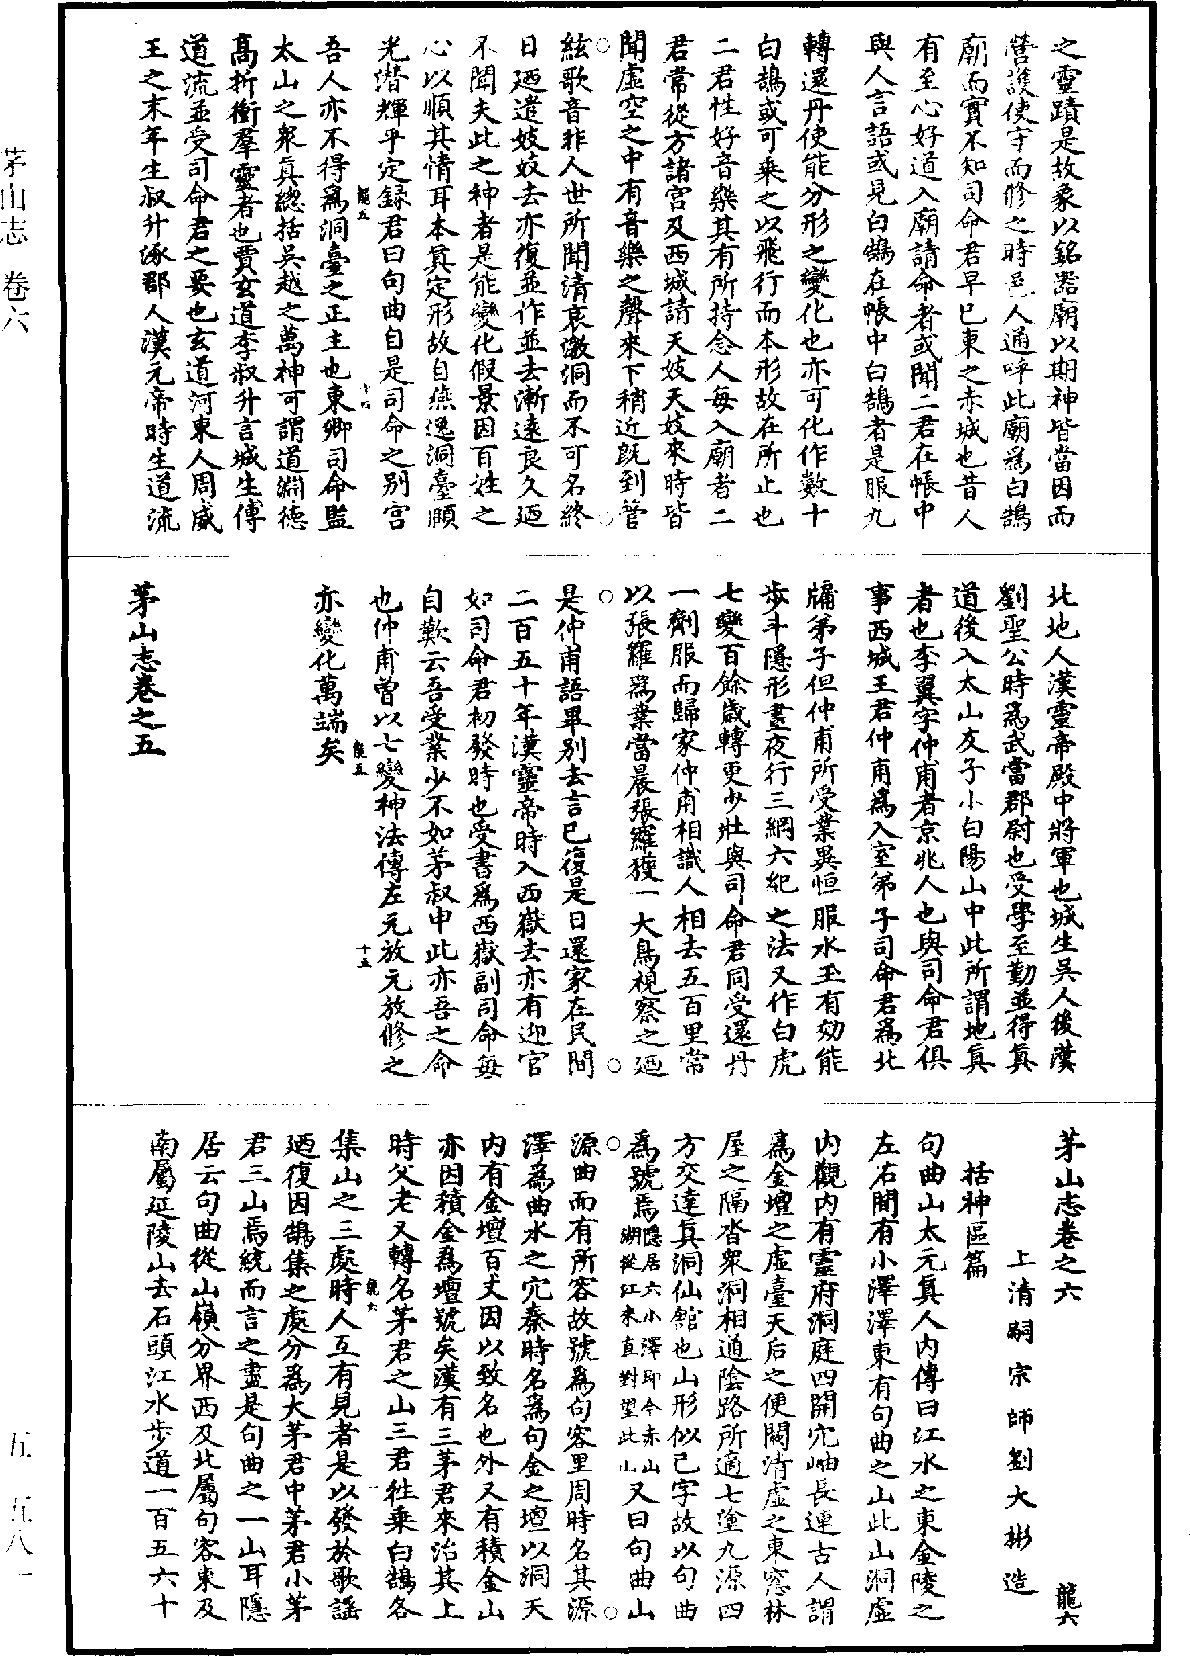 茅山志 卷六
之靈蹟是故象以銘器廟以期神皆當因而
營護使守而修之時邑人通呼此廟為白鵠
廟而實不知司命君早已東之赤城也昔人
有至心好道入廟請命者或聞二君在帳中
與人言語或見白鵠在帳中白鵠者是服九
轉還丹使能分形之變化也亦可化作數十
白鵠或可乘之以飛行而本形故在所止也
二君性好音樂其有所持念人每入廟者二
君常從方諸宮及西城請天妓天妓來時皆
聞虛空之中有音樂之聲來下稍近既到管
絃歌音非人世所聞清哀激洞而不可名終
日廼遣妓妓去亦復並作並去漸遠良久廼
不聞夫此之神者是能變化假景因百姓之
心以順其情耳本真定形故自燕逸洞臺顒
光潛輝乎定錄君曰句曲自是司命之別宮
龍五 十四
吾人亦不得為洞臺之正主也東卿司命監
太山之眾真總括吳越之萬神可謂道淵德
高折衝羣靈者也賈玄道李叔升言城生傅
道流並受司命君之要也玄道河東人周威
王之末年生叔升涿郡人漢元帝時生道流
北地人漢靈帝殿中將軍也城生吳人後漢
劉聖公時為武當郡尉也受學至勤並得真
道後入太山友子小白陽山中此所謂地真
者也李翼字仲甫者京兆人也與司命君俱
事西城王君仲甫為入室弟子司命君為北
牖弟子但仲甫所受業異恒服水玉有効能
步斗隱形晝夜行三綱六紀之法又作白虎
七變百餘歲轉更少壯與司命君同受還丹
一劑服而歸家仲甫相識人相去五百里常
以張羅為業當晨張羅獲一大鳥視察之廼
是仲甫語畢別去言已復是日還家在民間
二百五十年漢靈帝時入西嶽去亦有迎官
如司命君初發時也受書為西嶽副司命每
自歎云吾受業少不如茅叔申此亦吾之命
也仲甫曾以七變神法傳左元放元放修之
龍五 十五
亦變化萬端矣
茅山志卷之五
茅山志卷之六 龍六
上清嗣宗師劉大彬造
括神區篇
句曲山太元真人內傳曰江水之東金陵之
左右間有小澤澤東有句曲之山此山洞虛
內觀內有靈府洞庭四開穴岫長連古人謂
為金壇之虛臺天后之便闕清虛之東窓林
屋之隔沓眾洞相通陰路所適七塗九源四
方交達真洞仙館也山形似己字故以句曲
為號焉隱居云小澤即今赤山湖從江來直對望此山又曰句曲山
源曲而有所容故號為句容里周時名其源
澤為曲水之穴秦時名為句金之壇以洞天
內有金壇百丈因以致名也外又有積金山
亦因積金為壇號矣漢有三茅君來治其上
時父老又轉名茅君之山三君往乘白鵠各
龍六 一
集山之三處時人互有見者是以發於歌謠
廼復因鵠集之處分為大茅君中茅君小茅
君三山焉統而言之盡是句曲之一山耳隱
居云句曲從山嶺分界西及北屬句容東及
南屬延陵山去石頭江水步道一百五六十
五 五八一